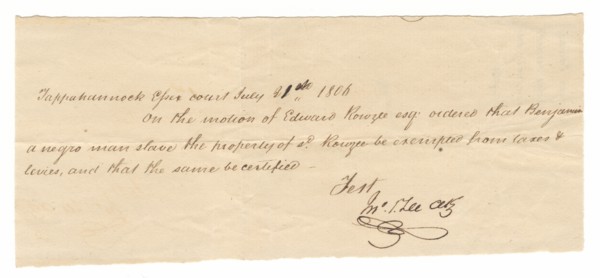 Tappahannock Essex court July 21st 1806
On the motion of Edward Rowzee esqr. ordered that Benjamin
a negro man slave the property of sd. Rowzee be exempted from taxes &
levies, and that the same be certified –
Test
Jno. P. Lee